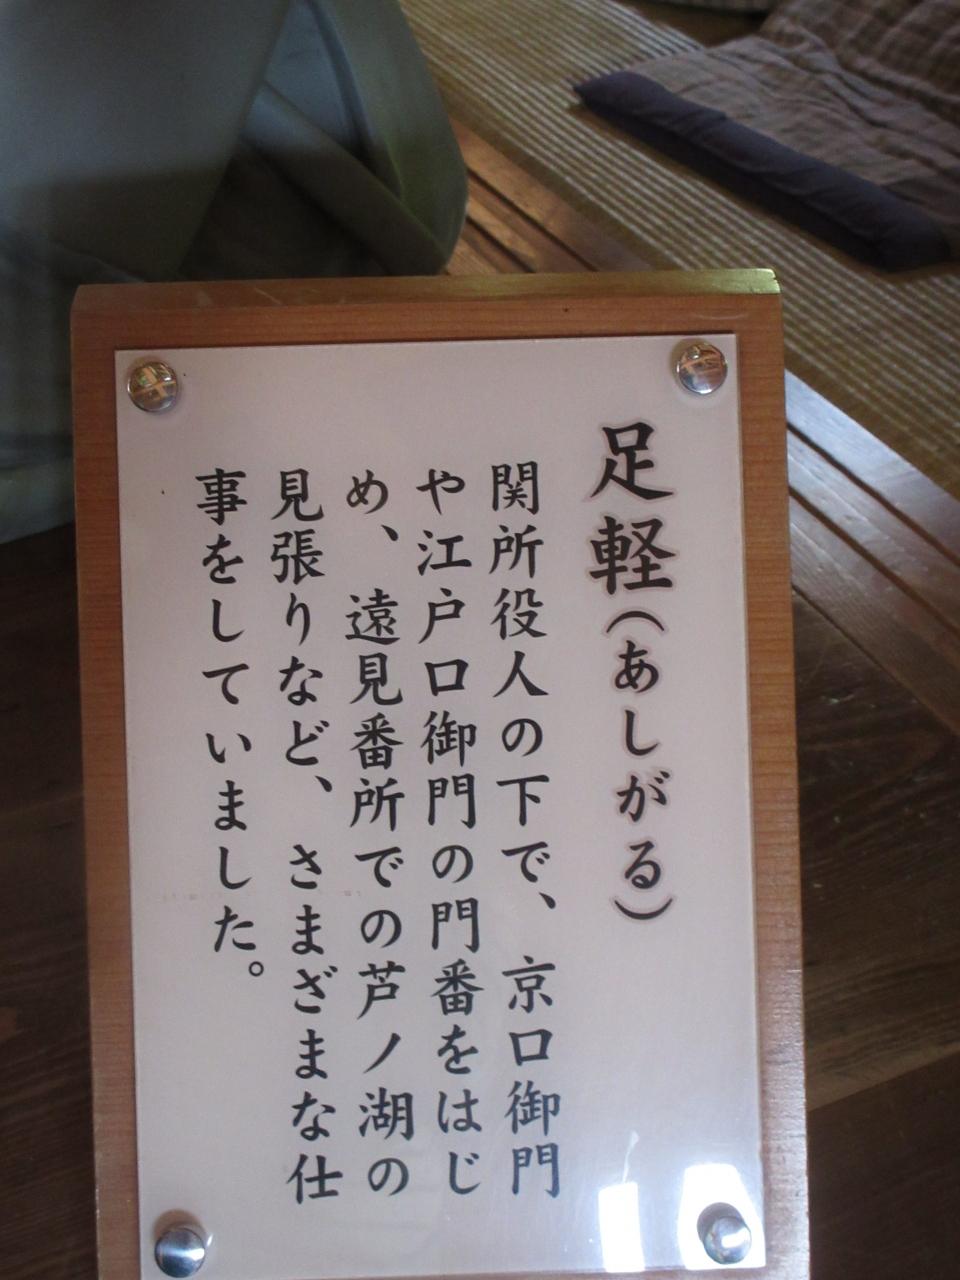 足軽（あしがる）
関所役人の下で、京口御門
や江戸口御門の門番をはじ
め、遠見番所での芦ノ湖の
見張りなど、さまざまな仕
事をしていました。